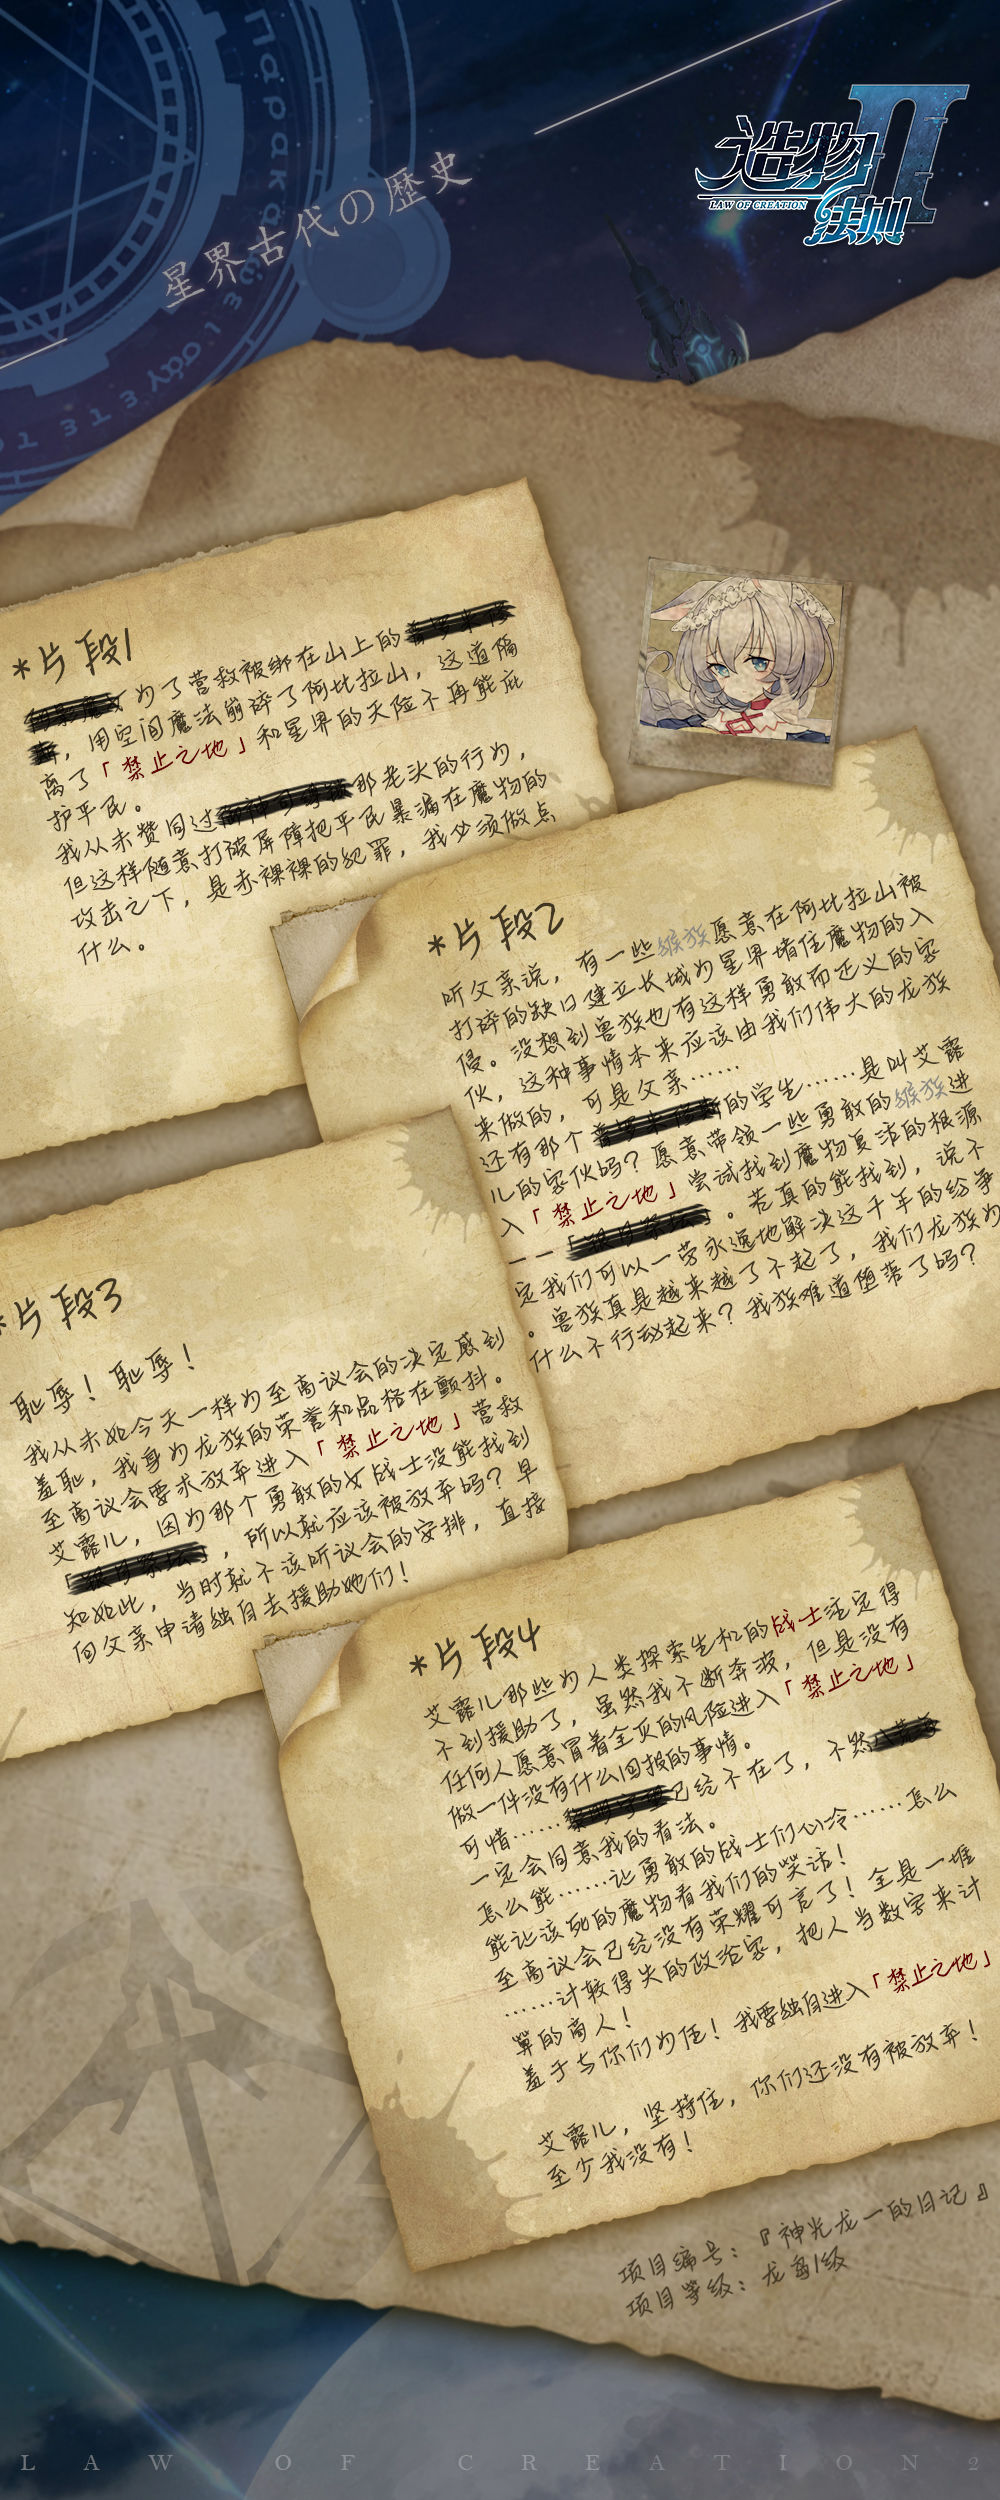 造物法则II
LAW OF CREATION
星界古代の歴史
*片段1
为了营救被绑在山上的
，用空间魔法崩碎了阿比拉山，这道隔
离了「禁止之地」和星界的天险不再能庇
护平民。
我从未赞同过那老头的行为，
但这样随意打破屏障把平民暴漏在魔物的
攻击之下，是赤裸裸的犯罪，我必须做点
什么。
*片段2
听父亲说，有一些猴族愿意在阿比拉山被
打碎的缺口建立长城为星界堵住魔物的入
侵。没想到兽族也有这样勇敢而正义的家
伙，这种事情本来应该由我们伟大的龙族
来做的，可是父亲……
还有那个的学生……是叫艾露
儿的家伙吗？愿意带领一些勇敢的猴族进
入「禁止之地」尝试找到魔物复活的根源
——「」。若真的能找到，说不
定我们可以一劳永逸地解决这千年的纷争
。兽族真是越来越了不起了，我们龙族为
什么不行动起来？我族难道堕落了吗？
*片段3
耻辱！耻辱！
我从未如今天一样为至高议会的决定感到
羞耻，我身为龙族的荣誉和品格在颤抖。
至高议会要求放弃进入「禁止之地」营救
艾露儿，因为那个勇敢的女战士没能找到
「」，所以就应该被放弃吗？早
知如此，当时就不该听议会的安排，直接
向父亲申请独自去援助她们！
*片段4
艾露儿那些为人类探索生机的战士注定得
不到援助了，虽然我不断奔波，但是没有
任何人愿意冒着全灭的风险进入「禁止之地」
做一件没有什么回报的事情。
可惜……已经不在了，不然
一定会同意我的看法。
怎么能……让勇敢的战士们心冷……怎么
能让该死的魔物看我们的笑话！
至高议会已经没有荣耀可言了！全是一堆
……计较得失的政治家，把人当数字来计
算的商人！
羞于与你们为伍！我要独自进入「禁止之地」
艾露儿，坚持住，你们还没有被放弃！
至少我没有！
项目编号：『神光龙一的日记』
项目等级：龙岛1级
LAW OF CREATION 2